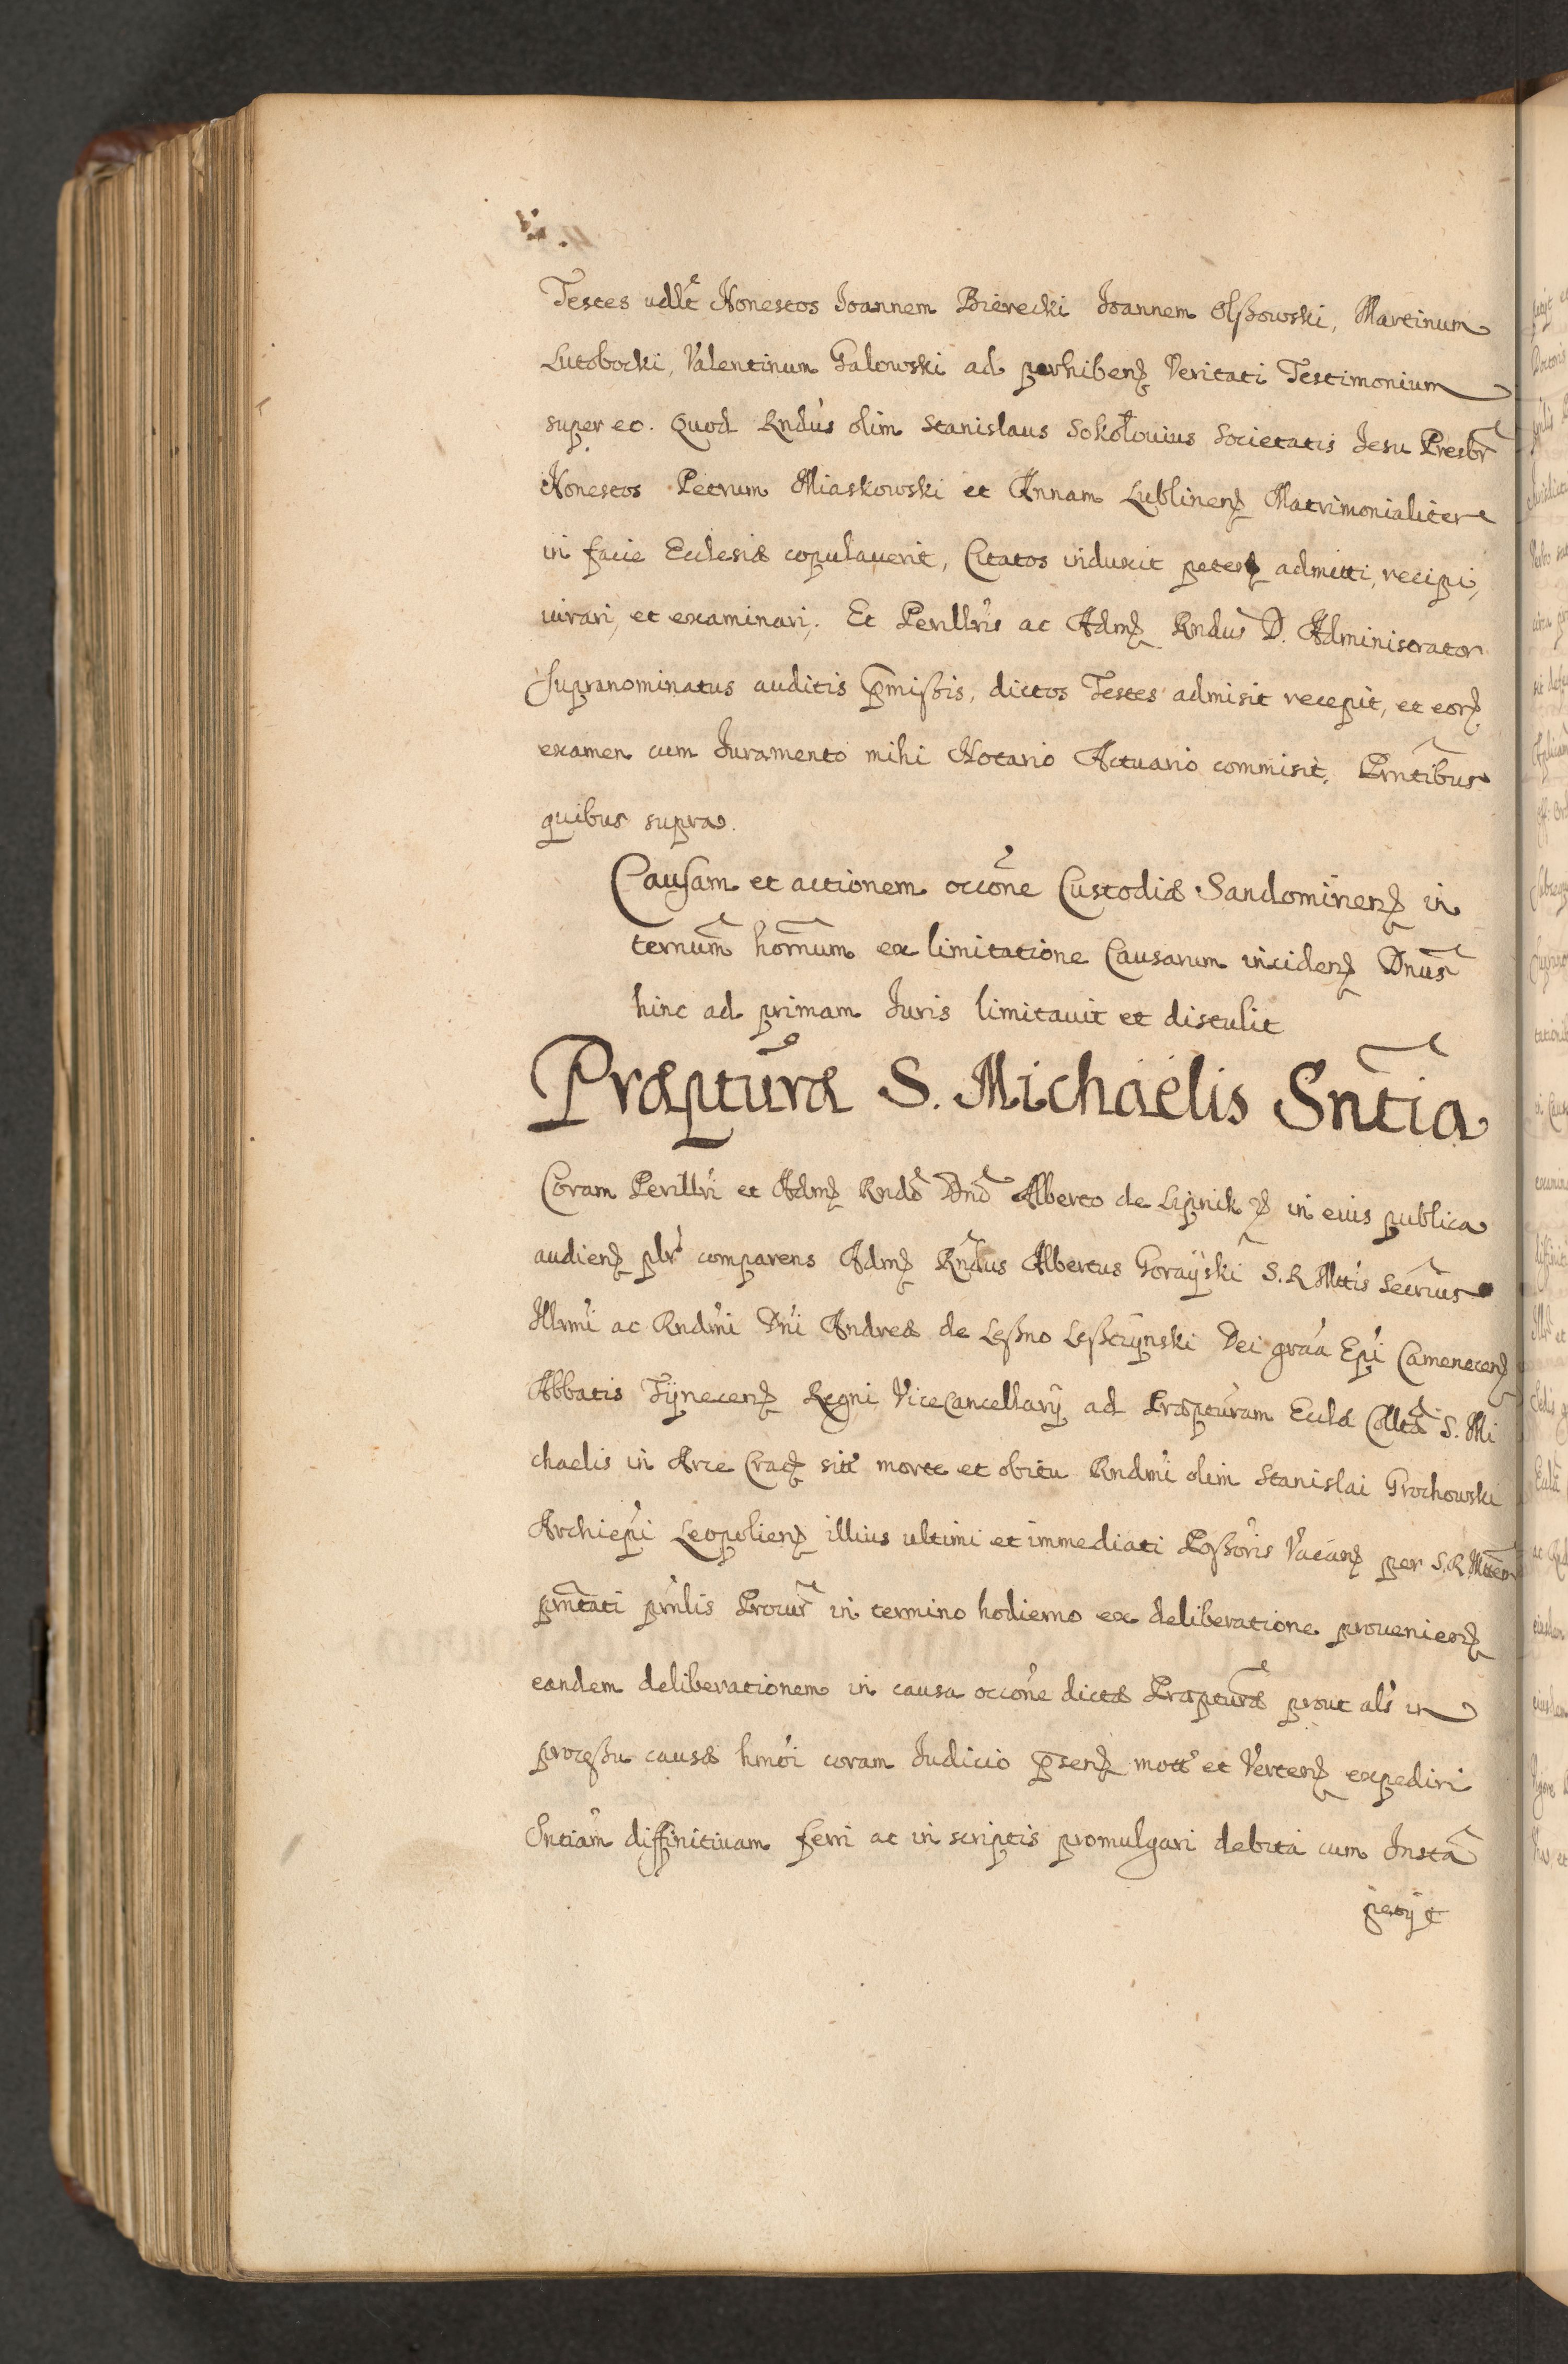 Testes vdlt Honestos Joannem Bierecki Joannem Olßowski, Martinum
Lutobocki, Valentinum Galowski ad perhibenꝫ Veritati Testimonium
super eo. Quod Rndus olim Stanislaus Sokołouius Societatis Jesu Presbr
Honestos Petrum Miaskowski et Annam Lublinenꝫ Matrimonialiter
in facie Ecclesiæ copulauerit, Citatos induxit petenꝫ admitti, recipi,
iurari, et examinari. Et Perillris ac Admꝫ Rndus D. Administrator
supranominatus auditis p̄mißis, dictos Testes admisit recepit, et eorꝫ
examen cum Juramento mihi Notario Actuario commisit, Prntibus
quibus supra.
Causam et actionem occōne Custodiæ Sandomirienꝫ in
ternum hornum ex limitatione Causarum incidenꝫ Dnus
hinc ad primam Juris limitauit et distulit
Præpturæ S. Michaelis Sntia
Coram Perillri et Admꝫ Rndo Dno Alberto de Lipnik ꝫ in eius publica
audienꝫ plr comparens Admꝫ Rndus Albertus Gorayski S. R Mttis Secrius
Illrmi ac Rndmi Dni Andreæ de Leßno Leßczynski Dei graa Epi Camenecenꝫ
Abbatis Tÿnecenꝫ Regni ViceCancellarÿ ad Præpturam Ecclæ Colltæ S. Mi
chaelis in Arce Cracꝫ sitt morte et obitu Rndmi olim Stanislai Grochowski
Archiepi Leopolienꝫ illius ultimi et immediati Poßoris Vacanꝫ per S. R. Mttem
prntati prnlis Procur in termino hodierno ex deliberatione prouenienꝫ
eandem deliberationem in causa occone dictæ Præpturæ prout als in
proceßu causæ hmoi coram Judicio p̄senꝫ mott et Vertenꝫ expediri
Sntiam diffinitiuam ferri ac in scriptis promulgari debita cum Insta
petÿt